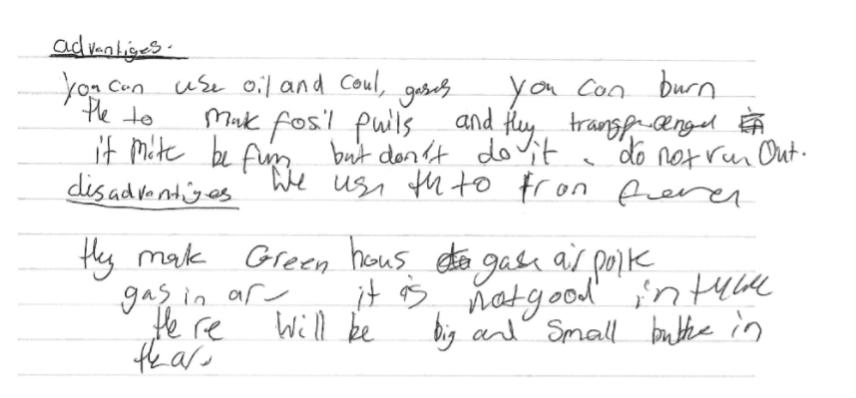 advantiges.
you can use oil and coul, gases you con burn
the to mak fos'l fuils and they
it mite be fun but don't do it. do not run out.
disadvantiges We use th to from
they mak Green hous gase air
gas in ar it is not good in
there will be big and small in
the ar